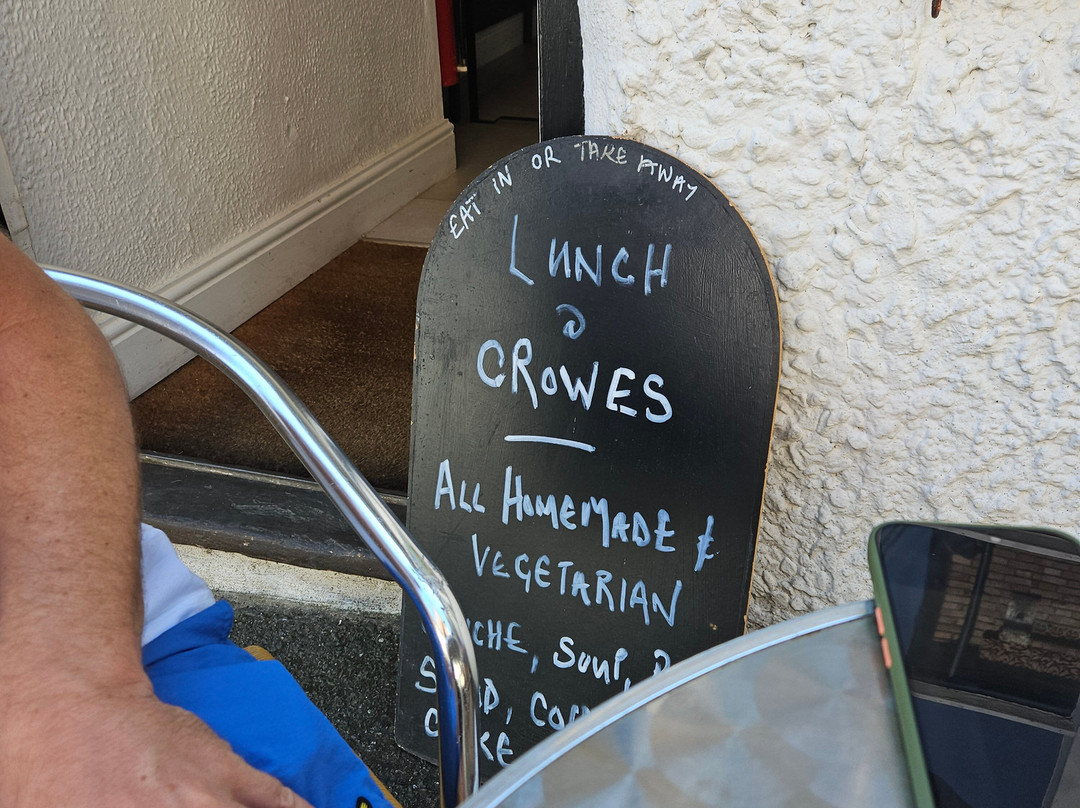 EAT IN OR TAKE AWAY
LUNCH
@
CROWES
ALL HOMEMADE &
VEGETARIAN
SOUP,